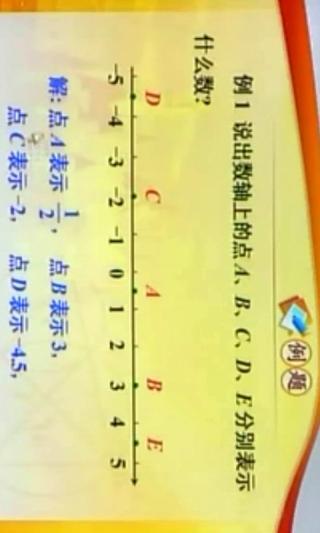 例题
例 1 说出数轴上的点 A、B、C、D、E 分别表示
什么数?
D C A B E
-5 -4 -3 -2 -1 0 1 2 3 4 5
解: 点 A 表示 1/2, 点 B 表示 3,
点 C 表示 -2, 点 D 表示 -4.5,